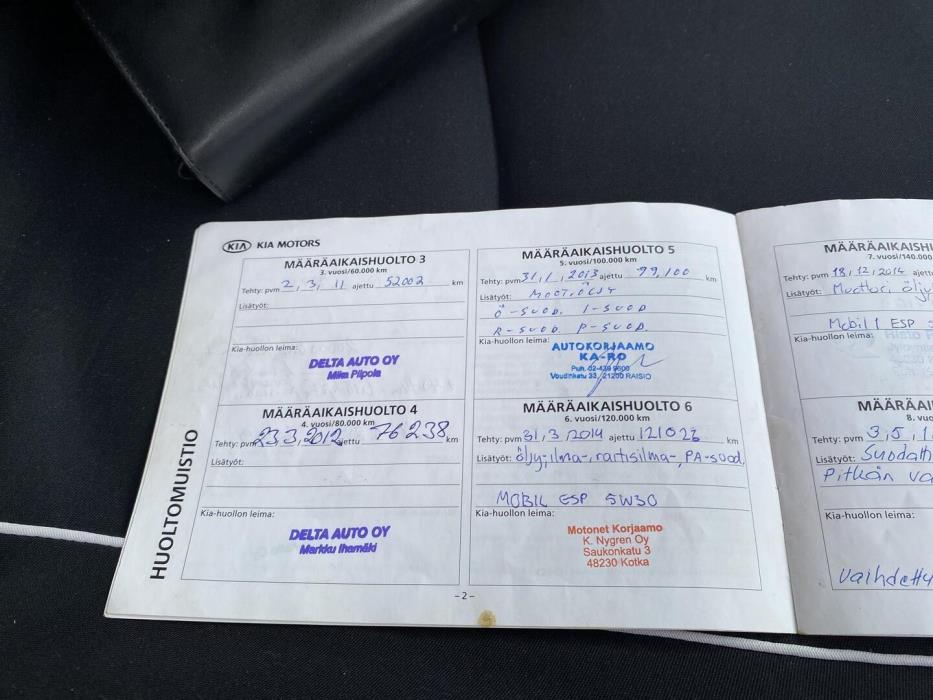 KIA KIA MOTORS
HUOLTOMUISTIO
MÄÄRÄAIKAISHUOLTO 3
3. vuosi/60.000 km
Tehty: pvm 2, 3, 11 ajettu 52003 km
Lisätyöt:
Kia-huollon leima:
DELTA AUTO OY
Mika Pilpola
MÄÄRÄAIKAISHUOLTO 4
4. vuosi/80.000 km
Tehty: pvm 23.3.2012 ajettu 76238 km
Lisätyöt:
Kia-huollon leima:
DELTA AUTO OY
Markku Ihamäki
MÄÄRÄAIKAISHUOLTO 5
5. vuosi/100.000 km
Tehty: pvm 31, 1, 2013 ajettu 99,100 km
Lisätyöt: MOOT.ÖLJY
Ö-SUOD. I-SUOD.
R-SUOD. P-SUOD.
Kia-huollon leima:
AUTOKORJAAMO
KA-RO
Puh. 02-439 9600
Voudinkatu 33, 21200 RAISIO
MÄÄRÄAIKAISHUOLTO 6
6. vuosi/120.000 km
Tehty: pvm 31, 3, 2014 ajettu 121028 km
Lisätyöt: öljy-, ilma-, raitisilma-, PA-suod.
MOBIL ESP 5W30
Kia-huollon leima:
Motonet Korjaamo
K. Nygren Oy
Saukonkatu 3
48230 Kotka
-2-
MÄÄRÄAIKAISH
7. vuosi/140.000
Tehty: pvm 18, 12, 2014 ajettu
Lisätyöt:
Mobil 1 ESP
Kia-huollon leima:
MÄÄRÄAI
8. vuo
Tehty: pvm 3, 5, 1
Lisätyöt: Suodatt
Pitkän va
Kia-huollon leima:
Vaihdettu